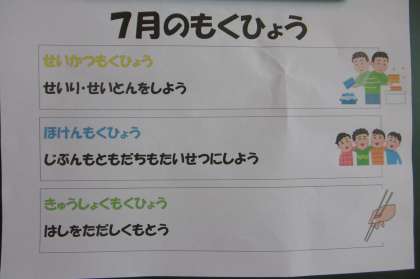 7月のもくひょう
せいかつもくひょう
せいり・せいとんをしよう
ほけんもくひょう
じぶんもともだちもたいせつにしよう
きゅうしょくもくひょう
はしをただしくもとう